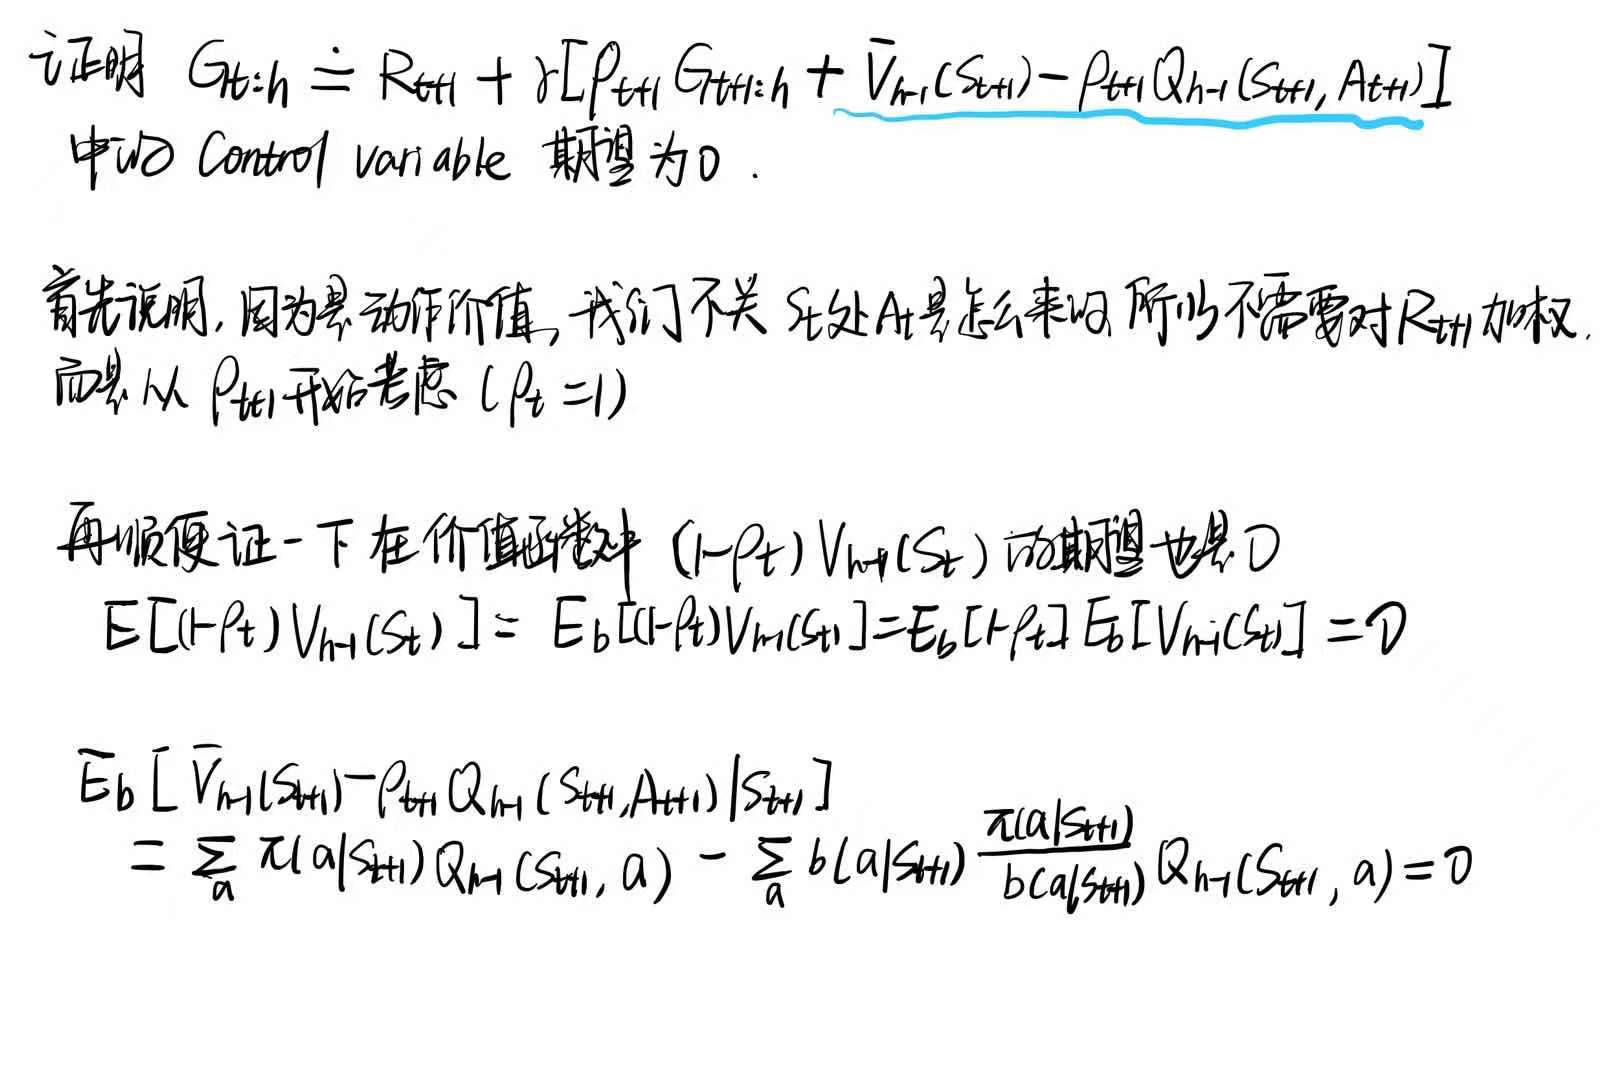 证明 G_{t:h} ≐ R_{t+1} + γ[ρ_{t+1} G_{t+1:h} + V̄_{h-1}(S_{t+1}) - ρ_{t+1} Q_{h-1}(S_{t+1}, A_{t+1})]
中的 Control variable 期望为0.
首先说明, 因为是动作价值, 我们不关 S_t处A_t是怎么来的 所以不需要对R_{t+1}加权.
而是从 ρ_{t+1}开始考虑 (ρ_t =1)
再顺便证一下在价值函数中 (1-ρ_t) V_{h-1}(S_t) 的期望也是0
E[(1-ρ_t) V_{h-1}(S_t)] = E_b[(1-ρ_t)V_{h-1}(S_t)] = E_b[1-ρ_t] E_b[V_{h-1}(S_t)] = 0
E_b[V̄_{h-1}(S_{t+1}) - ρ_{t+1} Q_{h-1}(S_{t+1}, A_{t+1})|S_{t+1}]
= Σ_a π(a|S_{t+1}) Q_{h-1}(S_{t+1}, a) - Σ_a b(a|S_{t+1}) π(a|S_{t+1})/b(a|S_{t+1}) Q_{h-1}(S_{t+1}, a) = 0